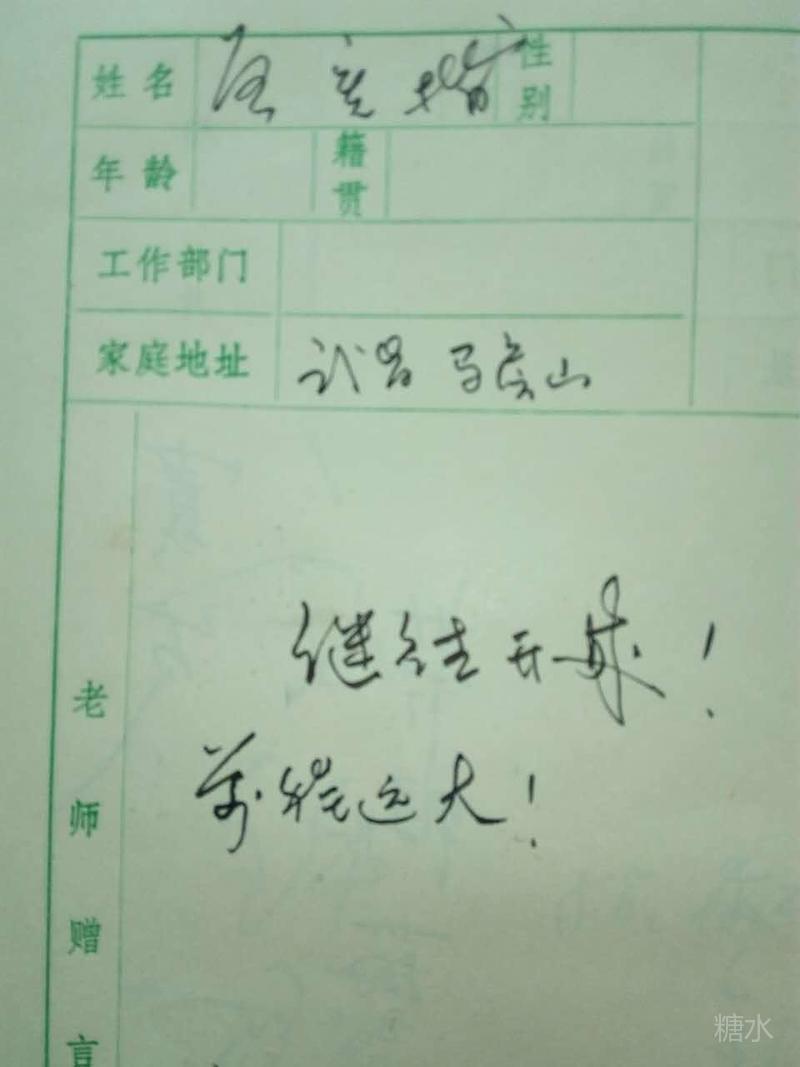 姓名 性别
年龄 籍贯
工作部门
家庭地址 武昌 马房山
继往开来!
前程远大!
老师赠言
糖水